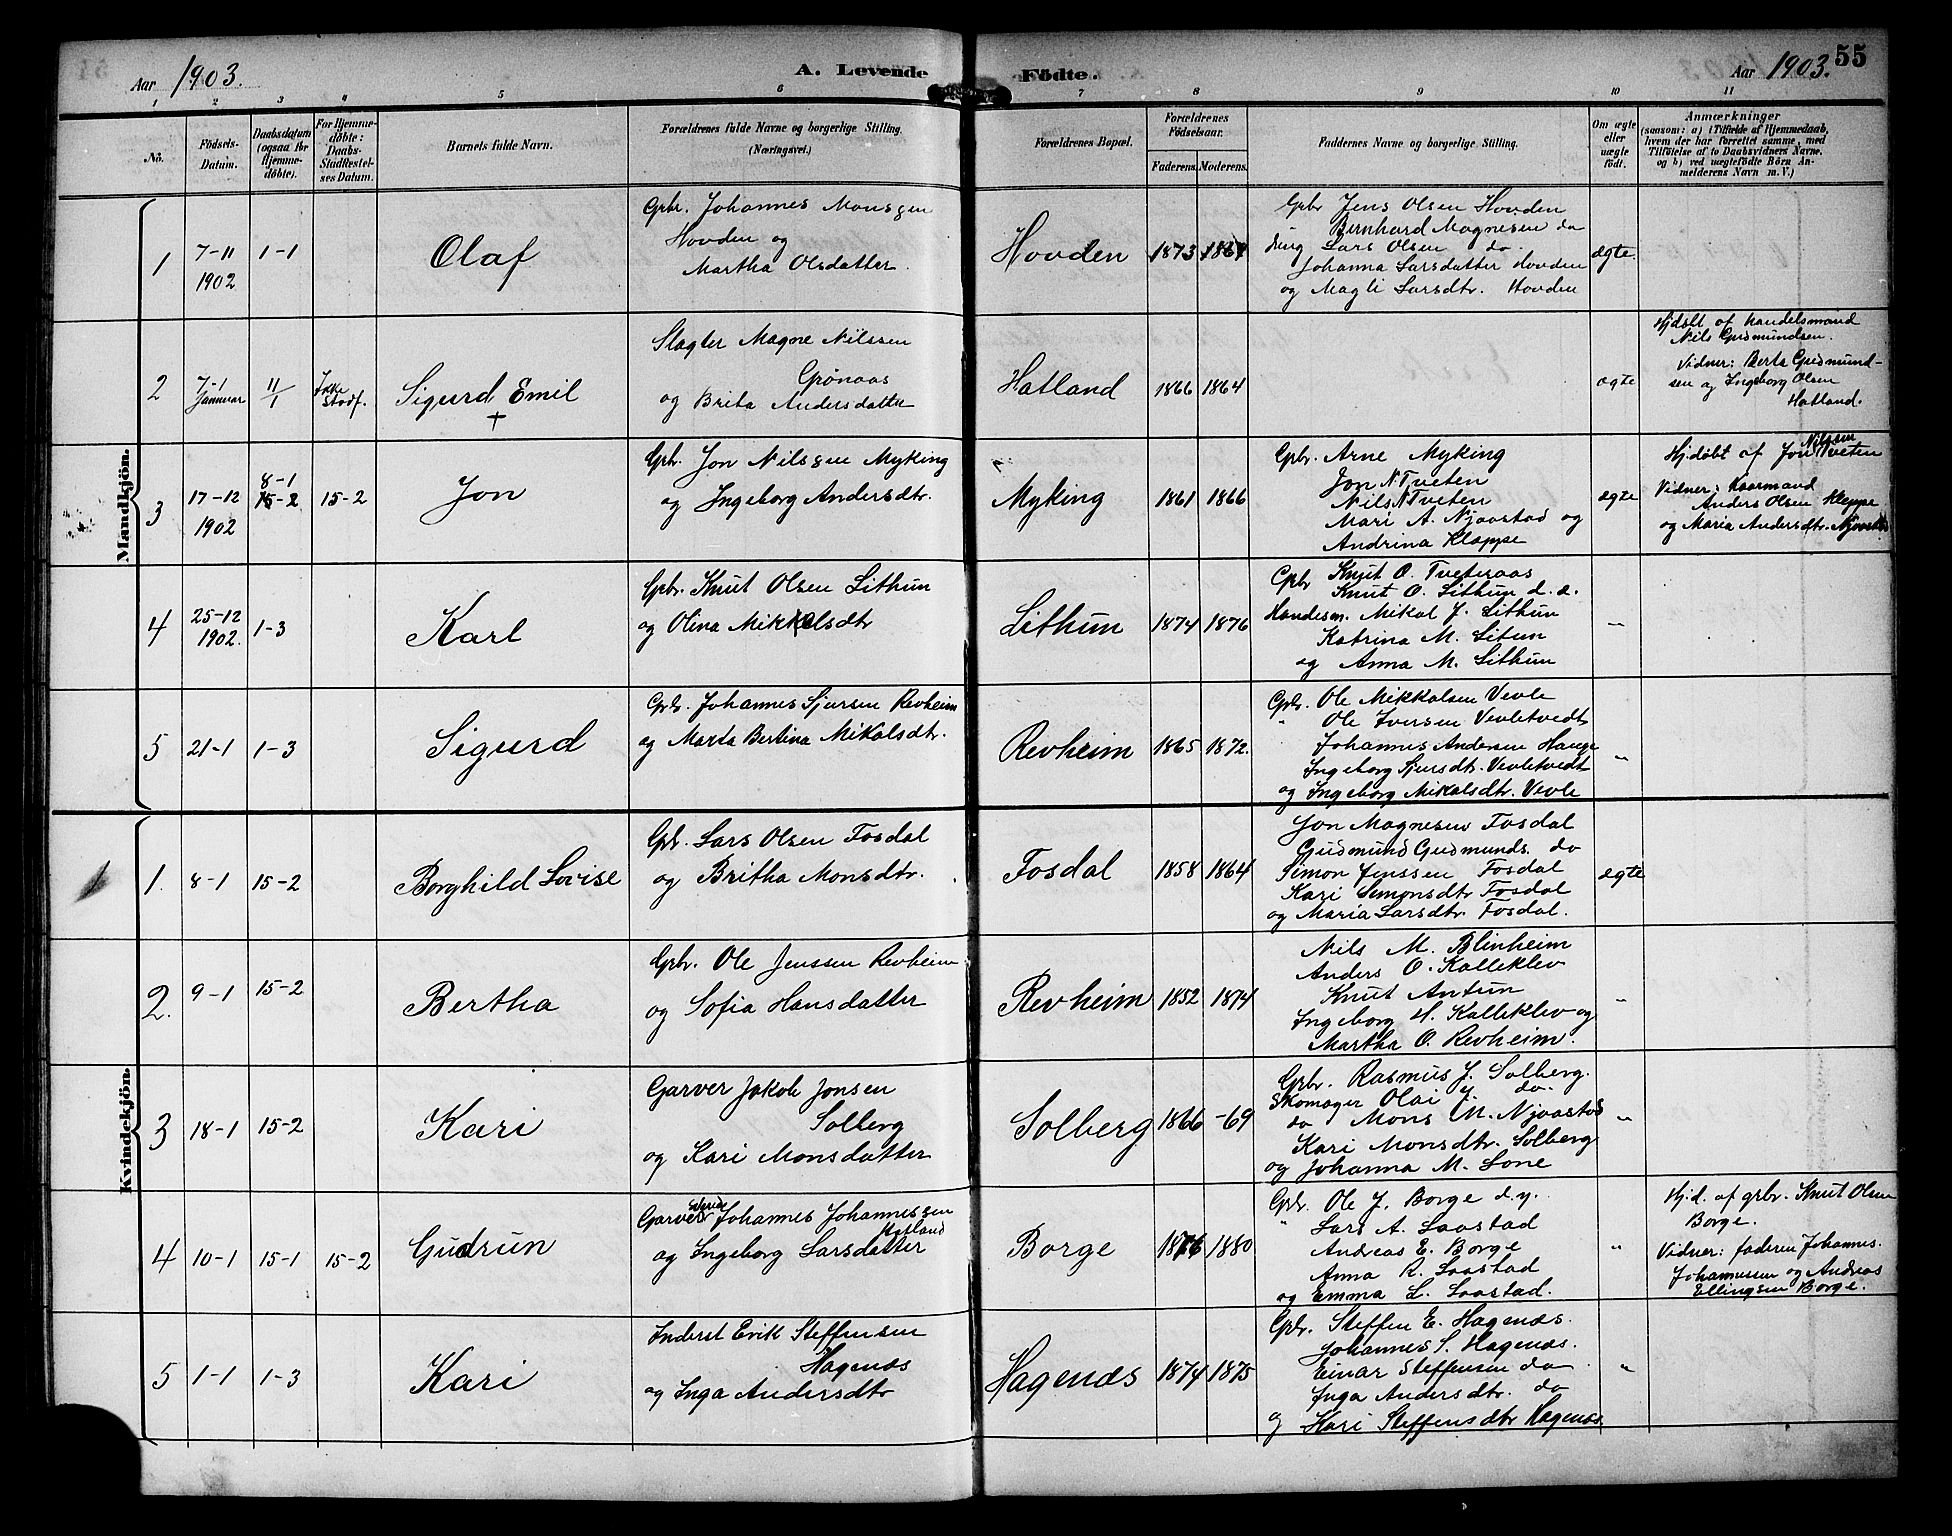 Aar 1903.
A. Levende Födte.
Aar 1903. 55
1 2 3 4 5 6 7 8 9 10 11
No.
Födsels-Datum.
Daabsdatum (ogsaa for Hjemme-döbte).
For Hjemme-döbte: Daabs-Stadfæstel-ses Datum.
Barnets fulde Navn.
Forældrenes fulde Navne og borgerlige Stilling. (Næringsvei.)
Forældrenes Bopæl.
Forældrenes Födselsaar.
Faderens. Moderens.
Faddernes Navne og borgerlige Stilling.
Om ægte eller uægte födt.
Anmærkninger
(saasom: a) i Tilfælde af Hjemmedaab,
hvem der har forrettet samme, med
Tilföielse af to Daabsvidners Navne,
og b) ved uægtefödte Börn An-
melderens Navn m. V.)
Mandkjön.
1
7-11
1902
1-1
Olaf
Gbr. Johannes Monssen
Hovden og
Martha Olsdatter.
Hovden
1873 1867
Gbr Jens Olsen Hovden
Bernhard Magnesen do
Lars Olsen do.
Johanna Larsdatter Hovden
og Magli Larsdtr. Hovden
ægte.
2
7-1
Januar
11/1
Ikke
stadf.
Sigurd Emil
†
Slagter Magne Nilssen
Grønaas
og Brita Andersdatter
Hatland
1866 1864
ægte
Hjdøbt af handelsmand
Nils Gudmundsen.
Vidner: Berta Gudmund-
sen og Ingeborg Olsen
Hatland.
3
17-12
1902
8-1
15-2
15-2
Jon
Gbr. Jon Nilssen Myking
og Ingeborg Andersdtr.
Myking
1861 1866
Gbr. Arne Myking
Jon N Tveten
Nils N Tveten
Mari A. Njaastad og
Andrina Kleppe
ægte
Hj.døbt af Jon Nilssen Tveten
Vidner: Kaarmand
Anders Olsen Kleppe
og Maria Andersdtr. Njaastad
4
25-12
1902.
1-3
Karl
Gbr. Knut Olsen Lithun
og Olina Mikkelsdtr
Lithun
1874 1876
Gbr Knut O. Tveteraas
Knut O. Lithun d. e.
Handesm. Mikal J. Lithun
Katrina M. Litun
og Anna M. Lithun
"
5
21-1
1-3
Sigurd
Gbr. Johannes Sjursen Revheim
og Marta Bertina Mikalsdtr.
Revheim
1865 1872.
Gbr. Ole Mikkalsen Vevle
" Ole Iversen Vevletvedt
Johannes Andersen Hauge
Ingeborg Sjursdtr. Vevletvedt
og Ingeborg Mikalsdtr. Vevle
"
Kvindekjön.
1.
8-1
15-2
Borghild Lovise
Gbr. Lars Olsen Fosdal
og Britha Monsdtr.
Fosdal
1858 1864
Jon Magnesen Fosdal
Gudmund Gudmunds. do
Simon Jenssen Fosdal
Kari Simonsdtr Fosdal
og Maria Larsdtr. Fosdal.
ægte
2.
9-1
15-2
Bertha
Gbr. Ole Jenssen Revheim
og Sofia Hansdatter
Revheim
1852 1874
Nils M. Blinheim
Anders O. Kalleklev
Knut Antun
Ingeborg H. Kalleklev og
Martha O. Revheim.
"
3
18-1
15-2
Kari
Garver Jakob Jonsen
Solberg
og Kari Monsdatter
Solberg
1866 -69
Gbr. Rasmus J. Solberg.
Skomager Olai J. do.
do Mons M. Njaastad
Kari Monsdtr. Solberg
og Johanna M. Lone
"
4
10-1
15-1
15-2
Gudrun
Garver Johannes Johannessen
Hatland
og Ingeborg Larsdatter
Borge
1876 1880
Gbr. Ole J. Borge d.y.
" Lars A. Laastad
Andreas E. Borge
Anna R. Laastad
og Emma L. Laastad.
"
Hj.d. af grbr. Knut Olsen
Borge.
Vidner: faderen Johannes.
Johannessen og Andreas
Ellingsen Borge.
5
1-1
1-3
Kari
Inderst Erik Steffensen
Hagenæs
og Inga Andersdtr
Hagenæs
1874 1875
Gbr. Steffen E. Hagenæs.
Johannes S. Hagenæs.
Einar Steffensen do
Inga Andersdtr. do
og Kari Steffensdtr Hagenæs.
"